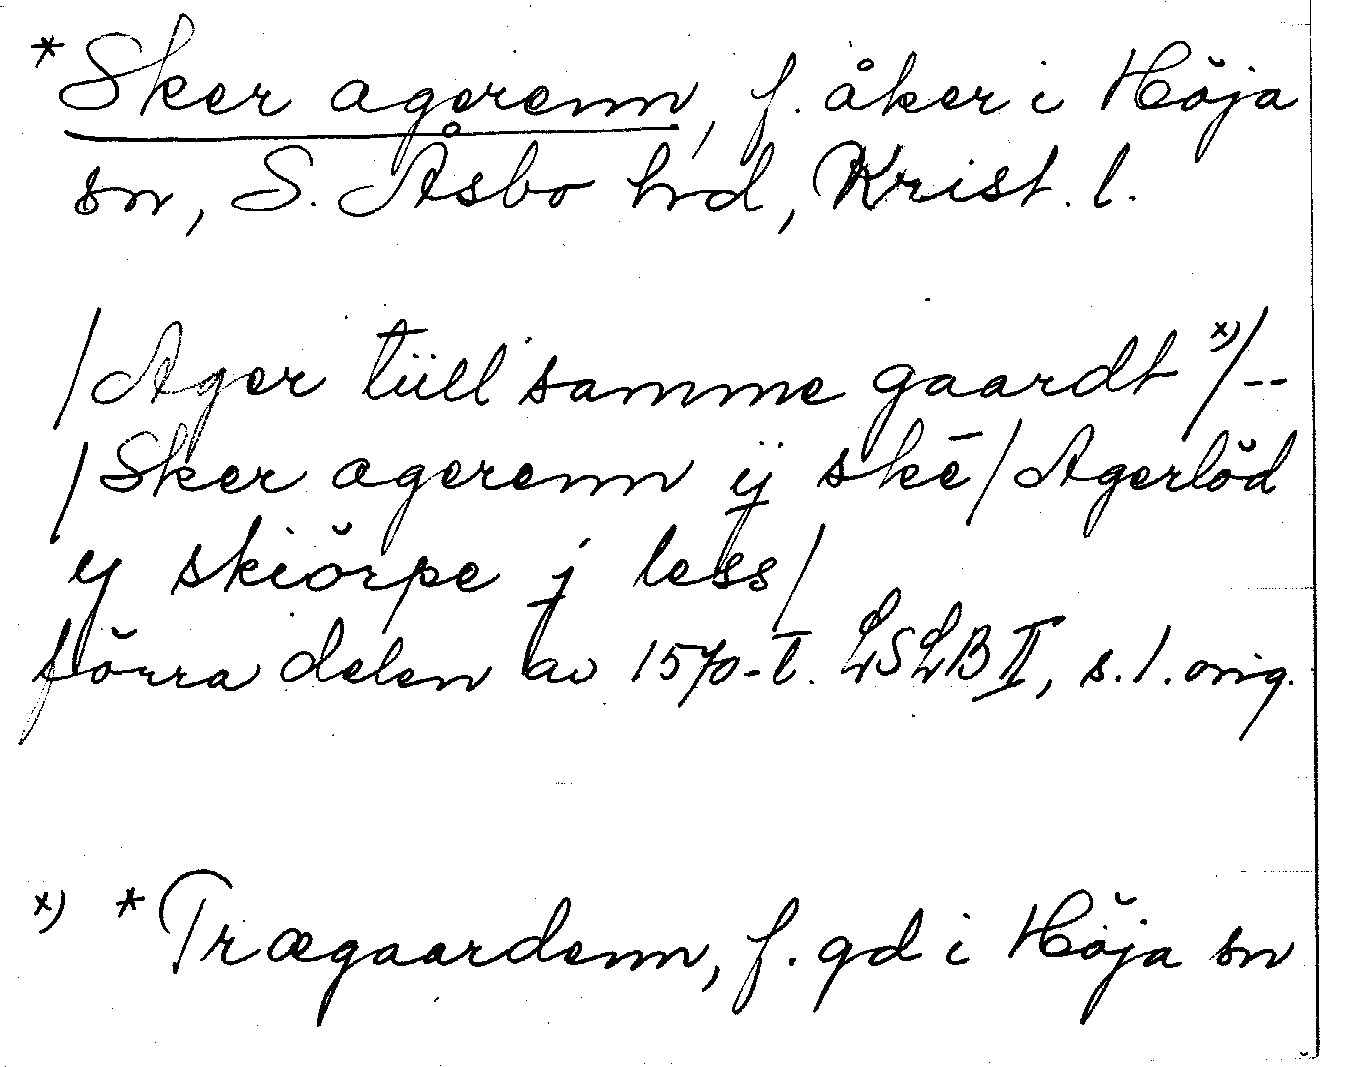 *Sker agerenn, f. åker i Höja
sn, S. Åsbo hrd, Krist. l.
/Ager tüll samme gaardt x)/--
/Sker agerenn ij skē/Agerlöd
ij skiörpe j less/
förra delen av 1570-t. LSLB II, s. 1. orig.
x) *Trægaardenn, f. gd i Höja sn